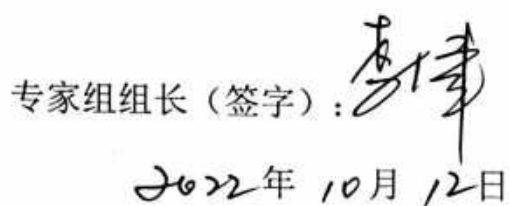 专家组组长（签字）：李伟
2022年 10月 12日